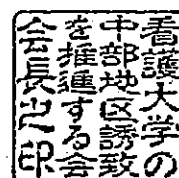 看護大学の
中部地区誘致
を推進する会
会長之印